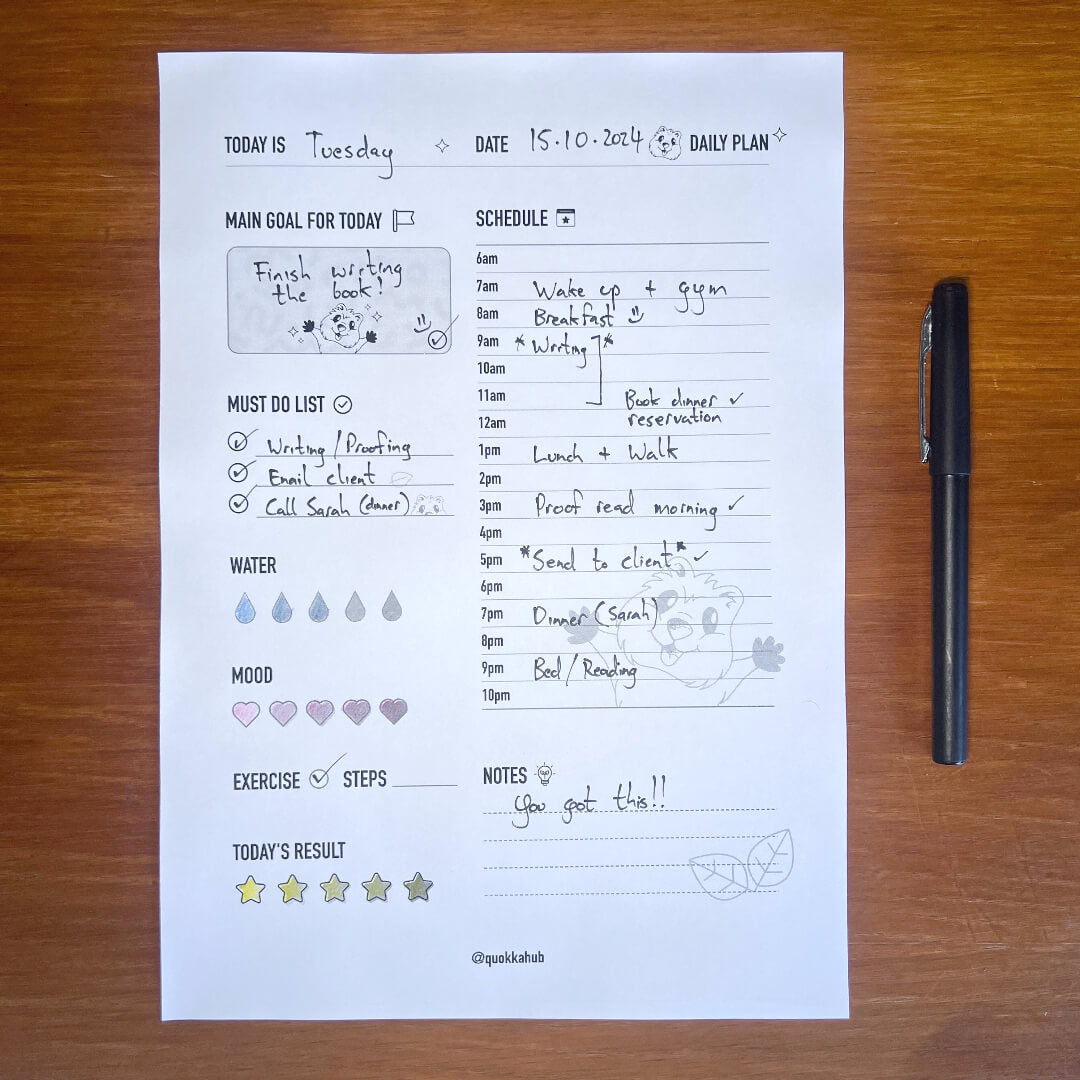 TODAY IS Tuesday DATE 15.10.2024 DAILY PLAN
MAIN GOAL FOR TODAY
Finish writing
the book!
MUST DO LIST
Writing / Proofing
Email client
Call Sarah (dinner)
WATER
MOOD
EXERCISE STEPS
TODAY'S RESULT
SCHEDULE
6am
7am Wake up + gym
8am Breakfast
9am * Writing *
10am
11am Book dinner ✓
reservation
12am
1pm Lunch + Walk
2pm
3pm Proof read morning ✓
4pm
5pm *Send to client* ✓
6pm
7pm Dinner (Sarah)
8pm
9pm Bed / Reading
10pm
NOTES
You got this!!
@quokkahub